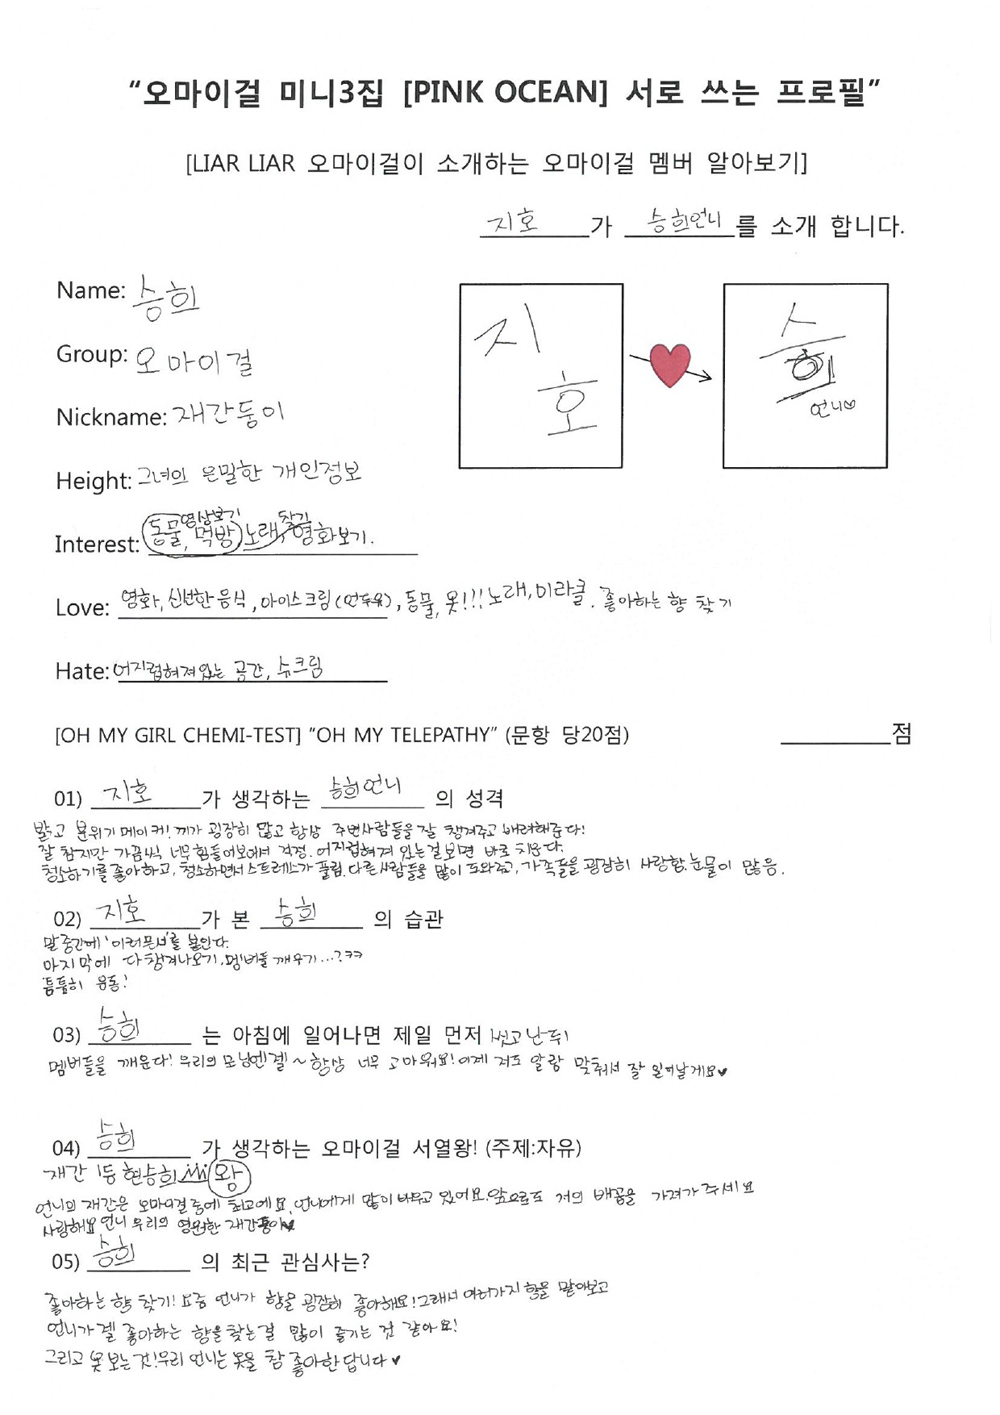 “오마이걸 미니3집 [PINK OCEAN] 서로 쓰는 프로필”
[LIAR LIAR 오마이걸이 소개하는 오마이걸 멤버 알아보기]
지호가 승희언니를 소개 합니다.
Name: 승희
Group: 오마이걸
Nickname: 재간둥이
Height: 그녀의 은밀한 개인정보
지호
승희
언니♡
영상보기 찾기
Interest: 동물, 먹방, 노래, 영화보기.
Love: 영화, 신선한 음식, 아이스크림(연두유), 동물, 옷!!! 노래, 미라클. 좋아하는 향 찾기
Hate: 어지럽혀져있는 공간, 슈크림
[OH MY GIRL CHEMI-TEST] “OH MY TELEPATHY” (문항 당20점) 점
01) 지호가 생각하는 승희언니의 성격
밝고 분위기메이커! 끼가 굉장히 많고 항상 주변사람들을 잘 챙겨주고 배려해준다!
잘 참지만 가끔씩 너무 힘들어보여서 걱정. 어지럽혀져 있는걸보면 바로 치운다.
청소하기를 좋아하고, 청소하면서 스트레스가 풀림. 다른 사람들을 많이 도와주고, 가족들을 굉장히 사랑함. 눈물이 많음.
02) 지호가 본 승희의 습관
말 중간에 '이러믄서'를 붙인다.
마지막에 다 챙겨나오기, 멤버들 깨우기...?ㅋㅋ
틈틈히 운동!
03) 승희는 아침에 일어나면 제일 먼저 씻고 난 뒤
멤버들을 깨운다! 우리의 모닝엔젤~ 항상 너무 고마워요! 이제 저도 알람 맞춰서 잘 일어날게요♥
04) 승희가 생각하는 오마이걸 서열왕! (주제:자유)
재간 1등 현승희 왕
언니의 재간은 오마이걸중에 최고예요. 언니에게 많이 배우고 있어요. 앞으로도 저의 배꼽을 가져가주세요
사랑해요 언니 우리의 영원한 재간둥이♥
05) 승희의 최근 관심사는?
좋아하는 향 찾기! 요즘 언니가 향을 굉장히 좋아해요! 그래서 여러가지 향을 맡아보고
언니가 젤 좋아하는 향을 찾는걸 많이 즐기는 것 같아요!
그리고 옷 보는것! 우리 언니는 옷을 참 좋아한답니다♥